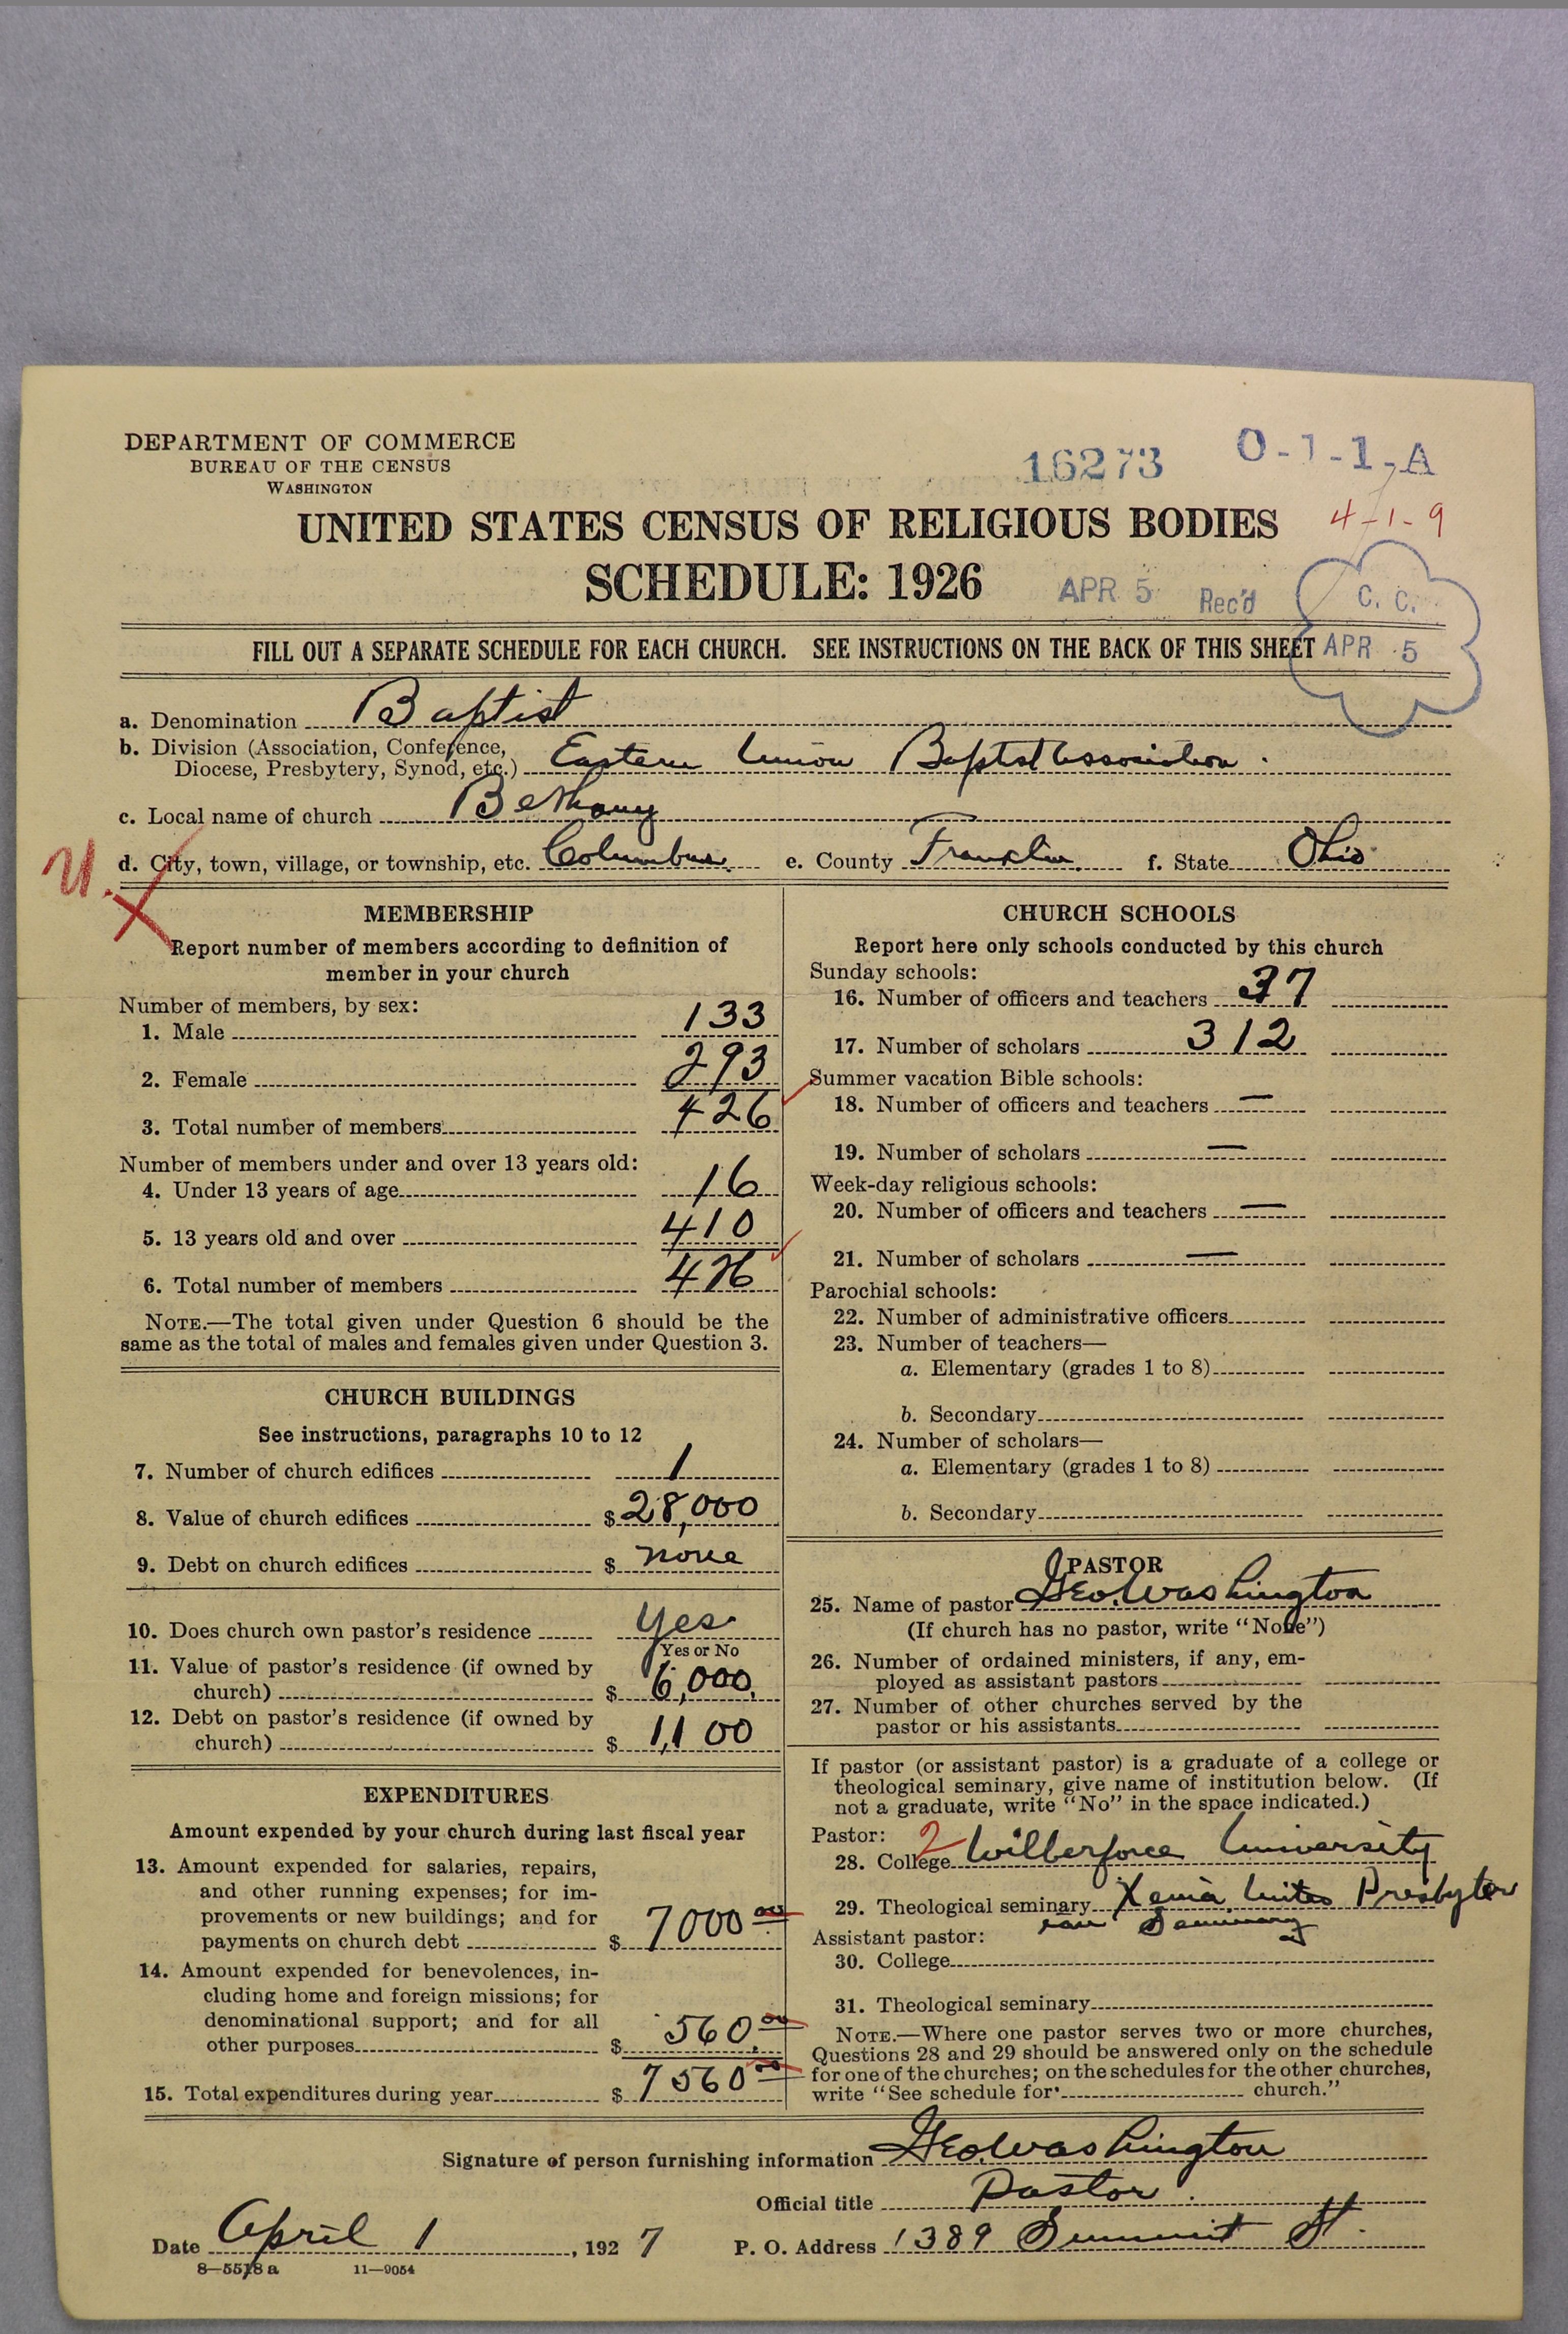 DEPARTMENT OF COMMERCE
BUREAU OF THE CENSUS
WASHINGTON
16273 O-1-1-A
UNITED STATES CENSUS OF RELIGIOUS BODIES 4-1-9
SCHEDULE: 1926 APR 5 Rec'd C. C.
FILL OUT A SEPARATE SCHEDULE FOR EACH CHURCH. SEE INSTRUCTIONS ON THE BACK OF THIS SHEET APR 5
a. Denomination Baptist
b. Division (Association, Conference,
Diocese, Presbytery, Synod, etc.) Eastern Union Baptist Association.
c. Local name of church Bethany
U. d. City, town, village, or township, etc. Columbus. e. County Franklin. f. State Ohio
MEMBERSHIP
Report number of members according to definition of
member in your church
Number of members, by sex:
1. Male 133
2. Female 293
3. Total number of members 426
Number of members under and over 13 years old:
4. Under 13 years of age 16
5. 13 years old and over 410
6. Total number of members 426
NOTE.—The total given under Question 6 should be the
same as the total of males and females given under Question 3.
CHURCH BUILDINGS
See instructions, paragraphs 10 to 12
7. Number of church edifices 1
8. Value of church edifices $ 28,000
9. Debt on church edifices $ none
10. Does church own pastor's residence Yes
Yes or No
11. Value of pastor's residence (if owned by
church) $ 6,000.
12. Debt on pastor's residence (if owned by
church) $ 1,100
EXPENDITURES
Amount expended by your church during last fiscal year
13. Amount expended for salaries, repairs,
and other running expenses; for im-
provements or new buildings; and for
payments on church debt $ 7000 00
14. Amount expended for benevolences, in-
cluding home and foreign missions; for
denominational support; and for all
other purposes $ 560.00
15. Total expenditures during year $ 7560 00
CHURCH SCHOOLS
Report here only schools conducted by this church
Sunday schools:
16. Number of officers and teachers 37
17. Number of scholars 312
Summer vacation Bible schools:
18. Number of officers and teachers —
19. Number of scholars —
Week-day religious schools:
20. Number of officers and teachers —
21. Number of scholars —
Parochial schools:
22. Number of administrative officers
23. Number of teachers—
a. Elementary (grades 1 to 8)
b. Secondary
24. Number of scholars—
a. Elementary (grades 1 to 8)
b. Secondary
PASTOR
25. Name of pastor Geo. Washington
(If church has no pastor, write "None")
26. Number of ordained ministers, if any, em-
ployed as assistant pastors
27. Number of other churches served by the
pastor or his assistants
If pastor (or assistant pastor) is a graduate of a college or
theological seminary, give name of institution below. (If
not a graduate, write "No" in the space indicated.)
Pastor: 2
28. College Wilberforce University
29. Theological seminary Xenia United Presbyter
ian Seminary
Assistant pastor:
30. College
31. Theological seminary
NOTE.—Where one pastor serves two or more churches,
Questions 28 and 29 should be answered only on the schedule
for one of the churches; on the schedules for the other churches,
write "See schedule for church."
Signature of person furnishing information Geo. Washington
Official title Pastor.
Date April 1, 1927 P. O. Address 1389 Summit St.
8—5518 a 11—9054